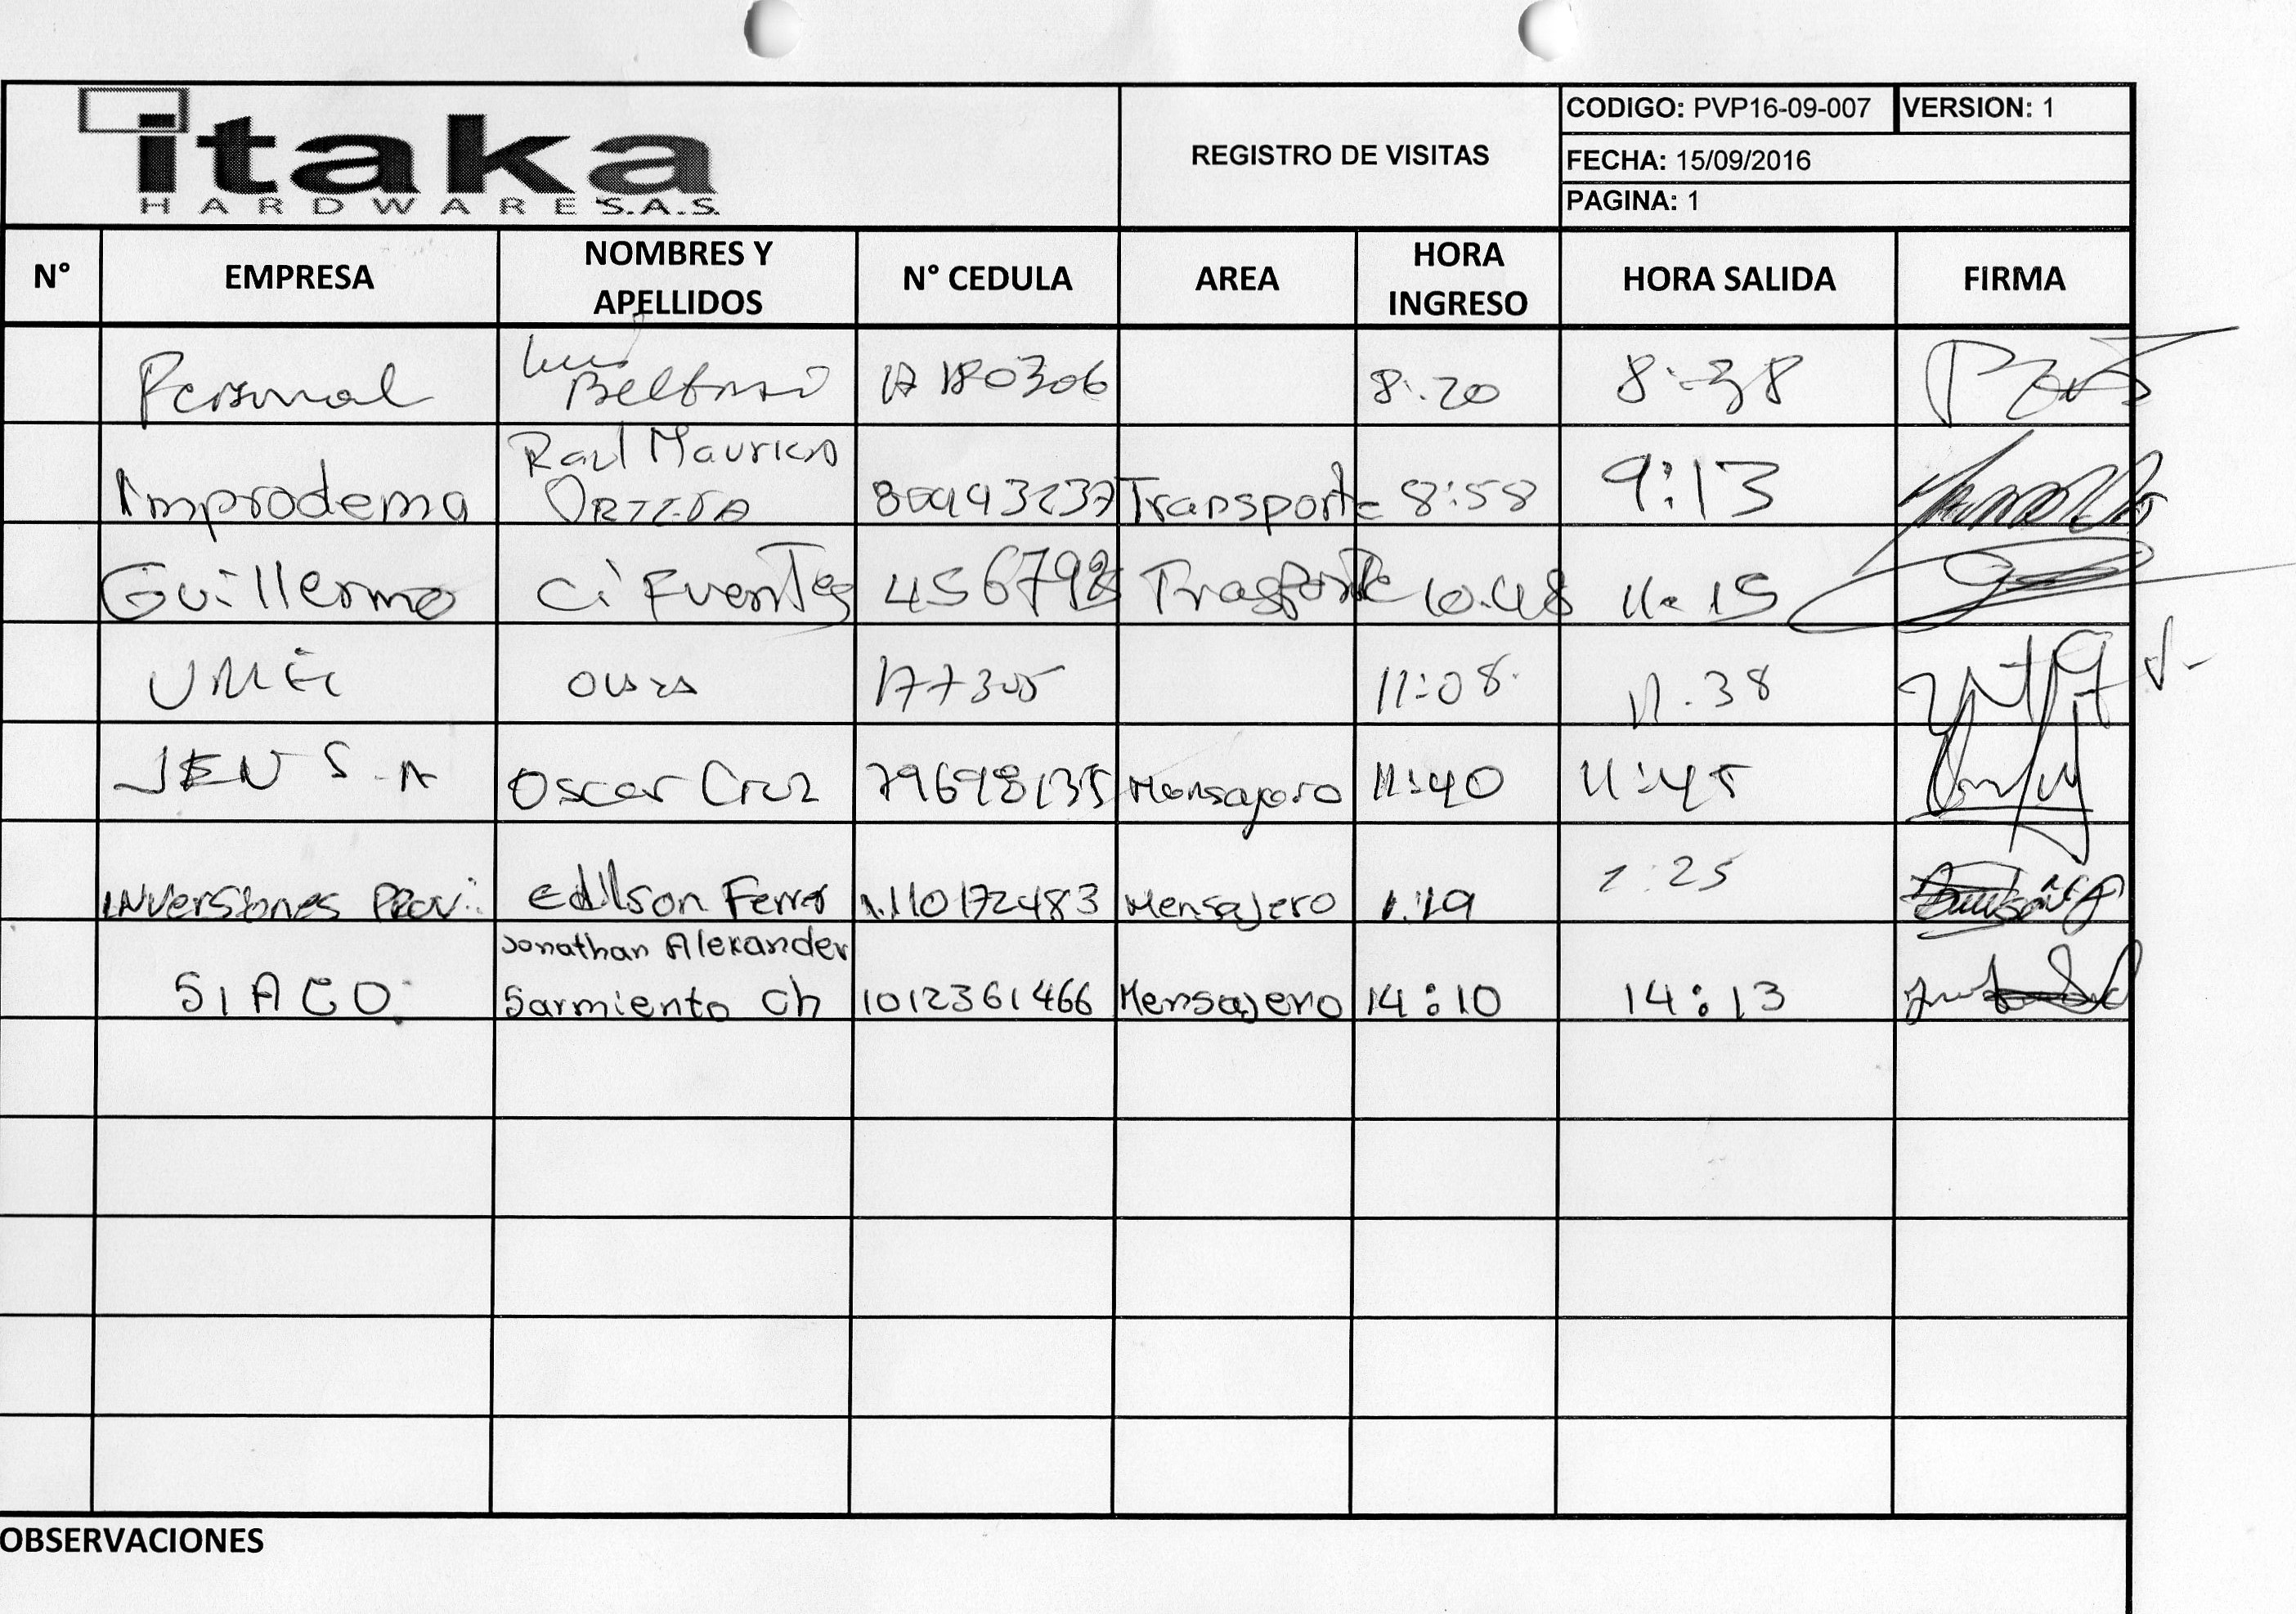 itaka
HARDWARE S.A.S.
REGISTRO DE VISITAS
CODIGO: PVP16-09-007 VERSION: 1
FECHA: 15/09/2016
PAGINA: 1
N° EMPRESA NOMBRES Y APELLIDOS N° CEDULA AREA HORA INGRESO HORA SALIDA FIRMA
Personal Luis 8:20 8:38
Improdema Raul Mauricio ORTEGA Transporte 8:58 9:13
Guillermo CiFuentes Trasporte 10:48 11:15
11:08 11:38
Oscar Cruz 79698135 Mensajero 11:40 11:45
INVersiones Edilson Ferro 1110172483 Mensajero 1:19 1:25
SIACO Jonathan Alexander Sarmiento Ch 1012361466 Mensajero 14:10 14:13
OBSERVACIONES